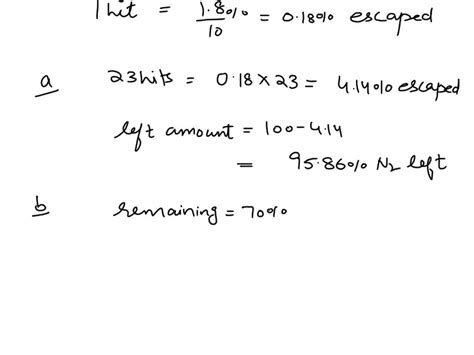 1 hit = 1.8%/10 = 0.18% escaped
a 23 hits = 0.18 × 23 = 4.14% escaped
left amount = 100 - 4.14
= 95.86% N₂ left
b remaining = 70%